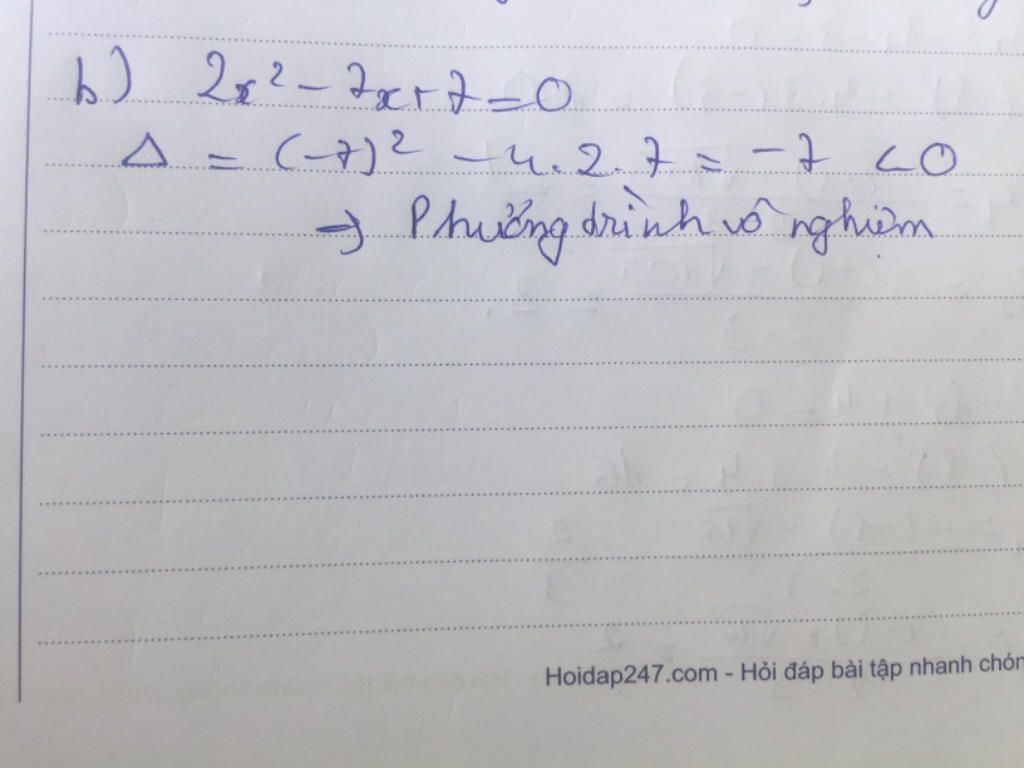 b) 2x² - 7x + 7 = 0
Δ = (-7)² - 4.2.7 = -7 < 0
→ Phương trình vô nghiệm
Hoidap247.com - Hỏi đáp bài tập nhanh chón